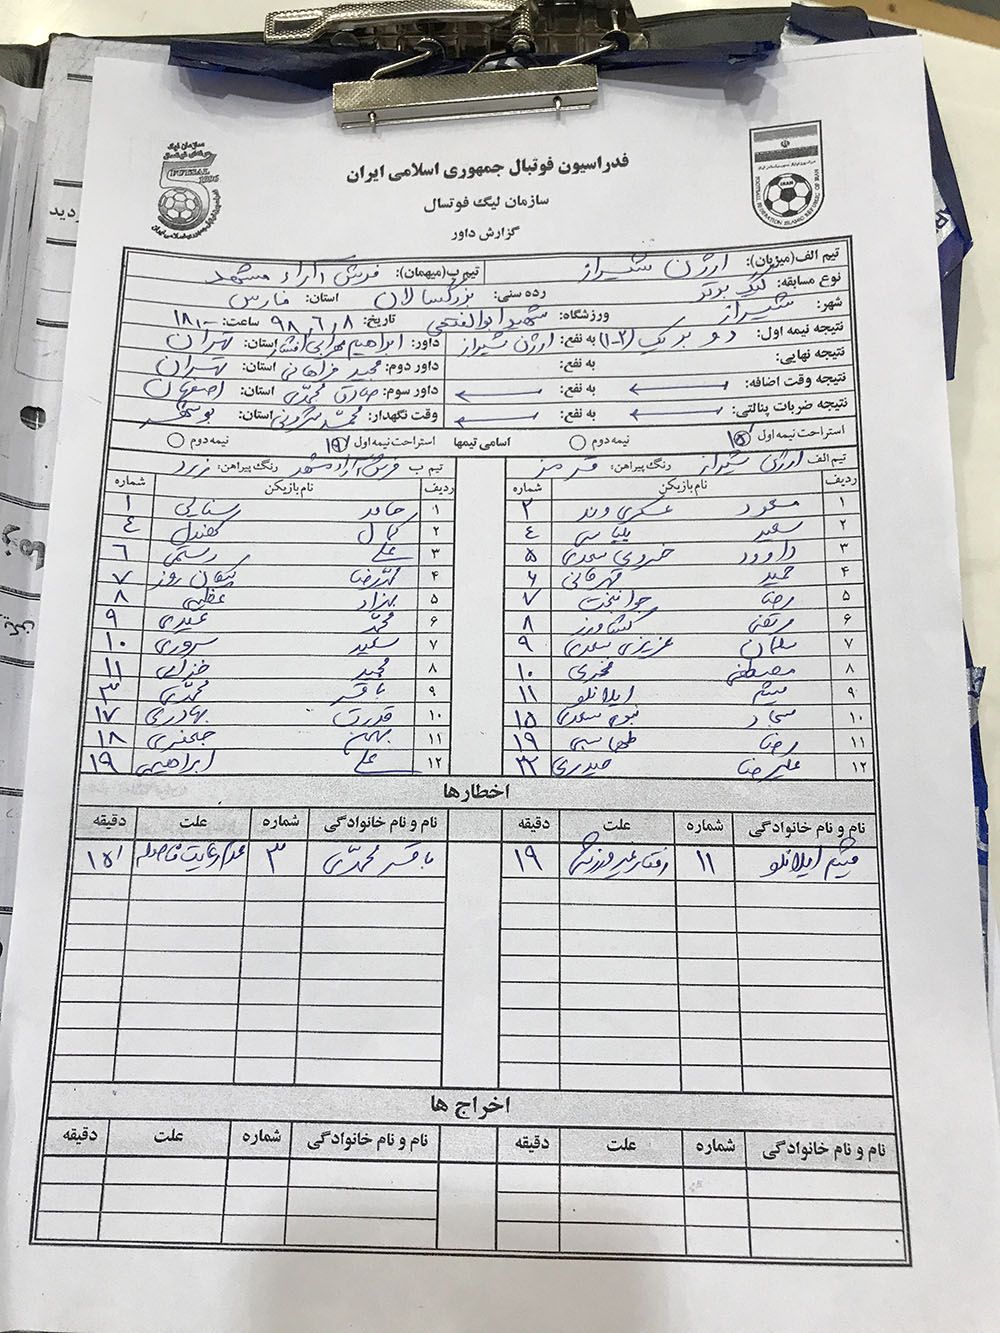 سازمان لیگ
FUTSAL
فدراسیون فوتبال جمهوری اسلامی ایران
سازمان لیگ فوتسال
گزارش داور
IRAN
FOOTBALL FEDERATION ISLAMIC REPUBLIC OF IRAN
تیم الف(میزبان): ارژن شیراز تیم ب(میهمان): فرش آراء مشهد
نوع مسابقه: لیگ برتر رده سنی: بزرگسالان استان: فارس
شهر: شیراز ورزشگاه: شهید ابوالفتحی تاریخ: ۹۸٫۶٫۸ ساعت: ۱۸:۰۰
نتیجه نیمه اول: دو بر یک (۲-۱) به نفع: ارژن شیراز داور: ابراهیم مهرابی افشار استان: تهران
نتیجه نهایی: به نفع: داور دوم: مجید فراهانی استان: تهران
نتیجه وقت اضافه: به نفع: داور سوم: صادق محمدی استان: اصفهان
نتیجه ضربات پنالتی: به نفع: وقت نگهدار: محمد استان: بوشهر
استراحت نیمه اول نیمه دوم اسامی تیمها استراحت نیمه اول نیمه دوم
تیم الف ارژن شیراز رنگ پیراهن: قرمز تیم ب فرش آراء مشهد رنگ پیراهن: زرد
ردیف نام بازیکن شماره ردیف نام بازیکن شماره
۱ مسعود عسکری وند ۲ ۱ حامد سنایی ۱
۲ سعید ۴ ۲ کمال کهندل ۴
۳ داوود خسروی سعدی ۵ ۳ علی رستمی ۶
۴ حمید قهرمانی ۶ ۴ محمدرضا پیکان روز ۷
۵ رضا جوانبخت ۷ ۵ بهزاد عظیمی ۸
۶ مرتضی کشاورز ۸ ۶ محمد عبیری ۹
۷ سلمان عزیزی سعدی ۹ ۷ سعید سروری ۱۰
۸ مصطفی فخری ۱۰ ۸ مجید خزاعی ۱۱
۹ میثم ایلانلو ۱۱ ۹ باقر محمدی ۳
۱۰ سجاد سعدی ۱۵ ۱۰ قدرت بهادری ۱۷
۱۱ رضا طهماسبی ۱۹ ۱۱ بهمن جعفری ۱۸
۱۲ علیرضا حیدری ۲۲ ۱۲ علی ابراهیمی ۱۹
اخطارها
نام و نام خانوادگی شماره علت دقیقه نام و نام خانوادگی شماره علت دقیقه
میثم ایلانلو ۱۱ رفتار غیر ورزشی ۱۹ باقر محمدی ۳ عدم رعایت فاصله
اخراج ها
نام و نام خانوادگی شماره علت دقیقه نام و نام خانوادگی شماره علت دقیقه